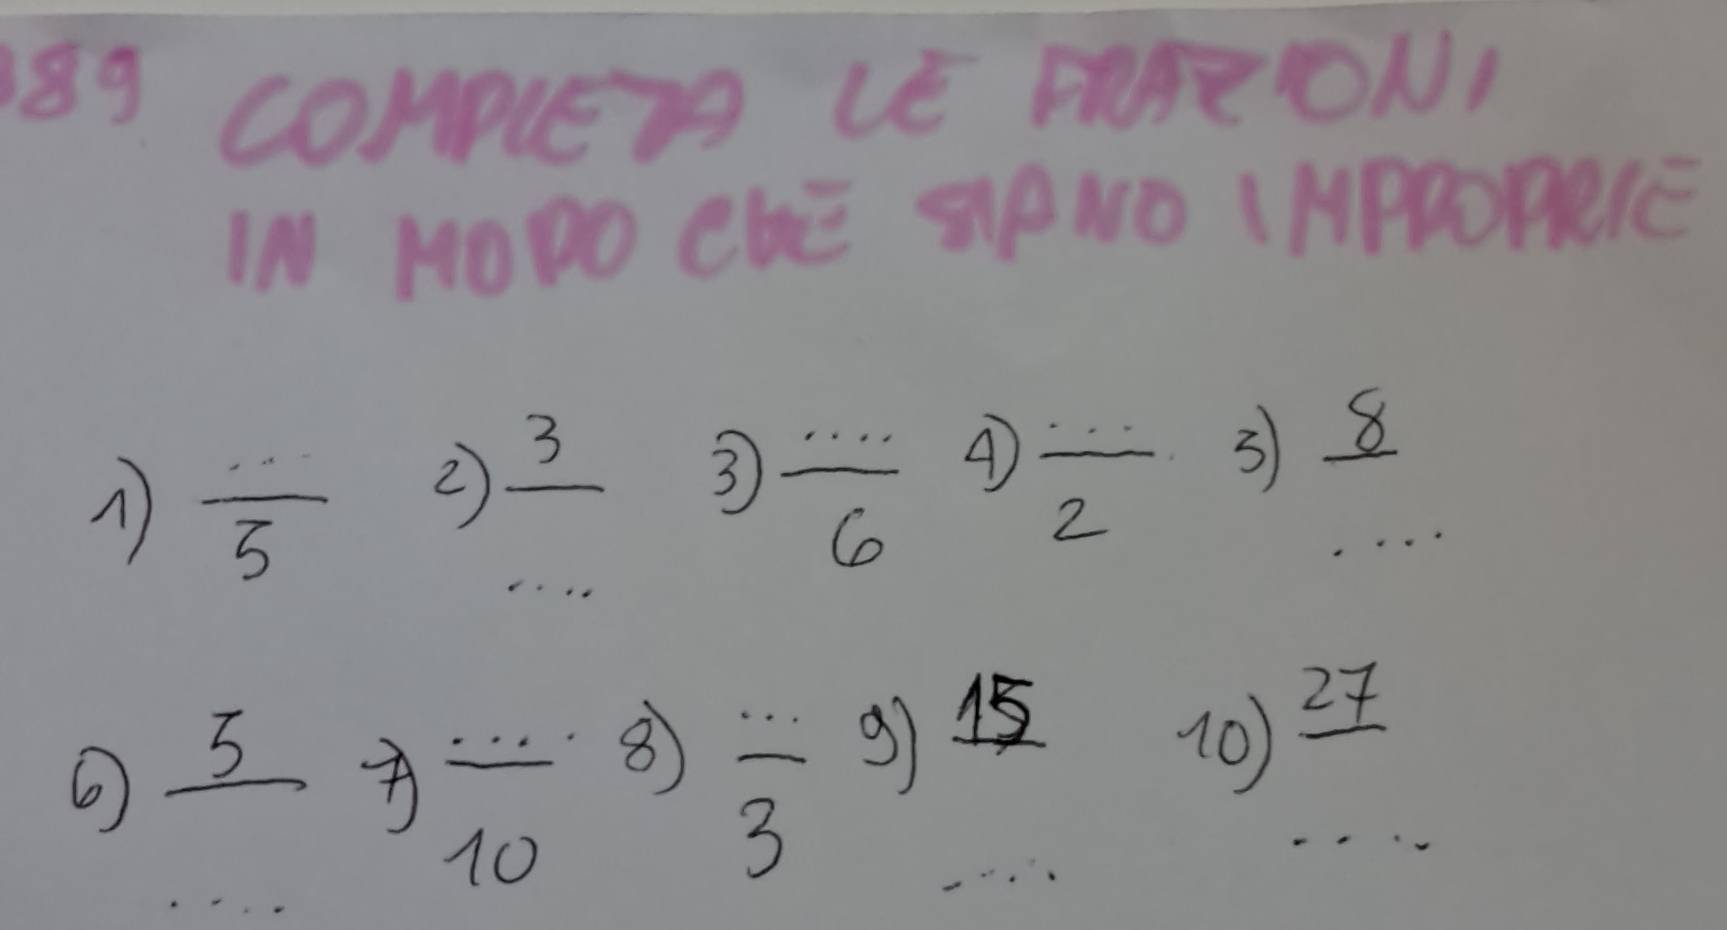 389 COMPLETA LE FRAZIONI
IN MODO CHE SIANO IMPROPRIE
1) .../5 2) 3/.... 3) ..../6 4) .../2 5) 8/....
6) 5/.... 7) ..../10 8) .../3 9) 15/.... 10) 27/....